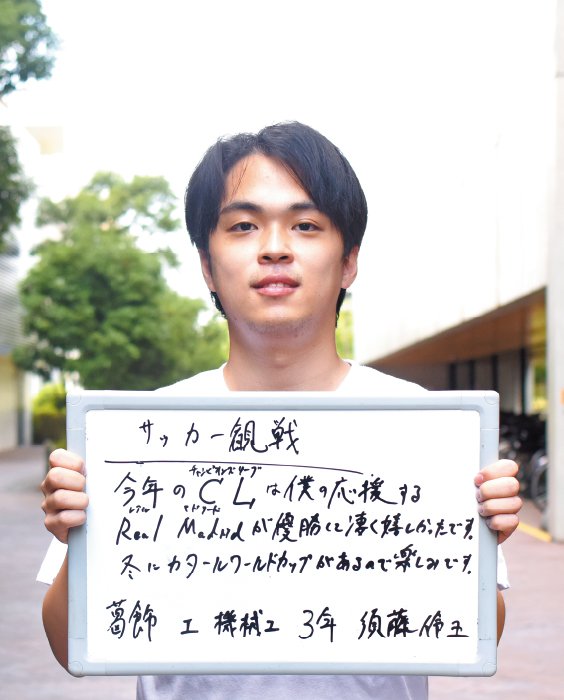 サッカー観戦
チャンピオンズリーグ
今年のCLは僕の応援する
レアル マドリード
Real Madridが優勝して凄く嬉しかったです。
冬にカタールワールドカップがあるので楽しみです。
葛飾 工 機械工 3年 須藤伶王